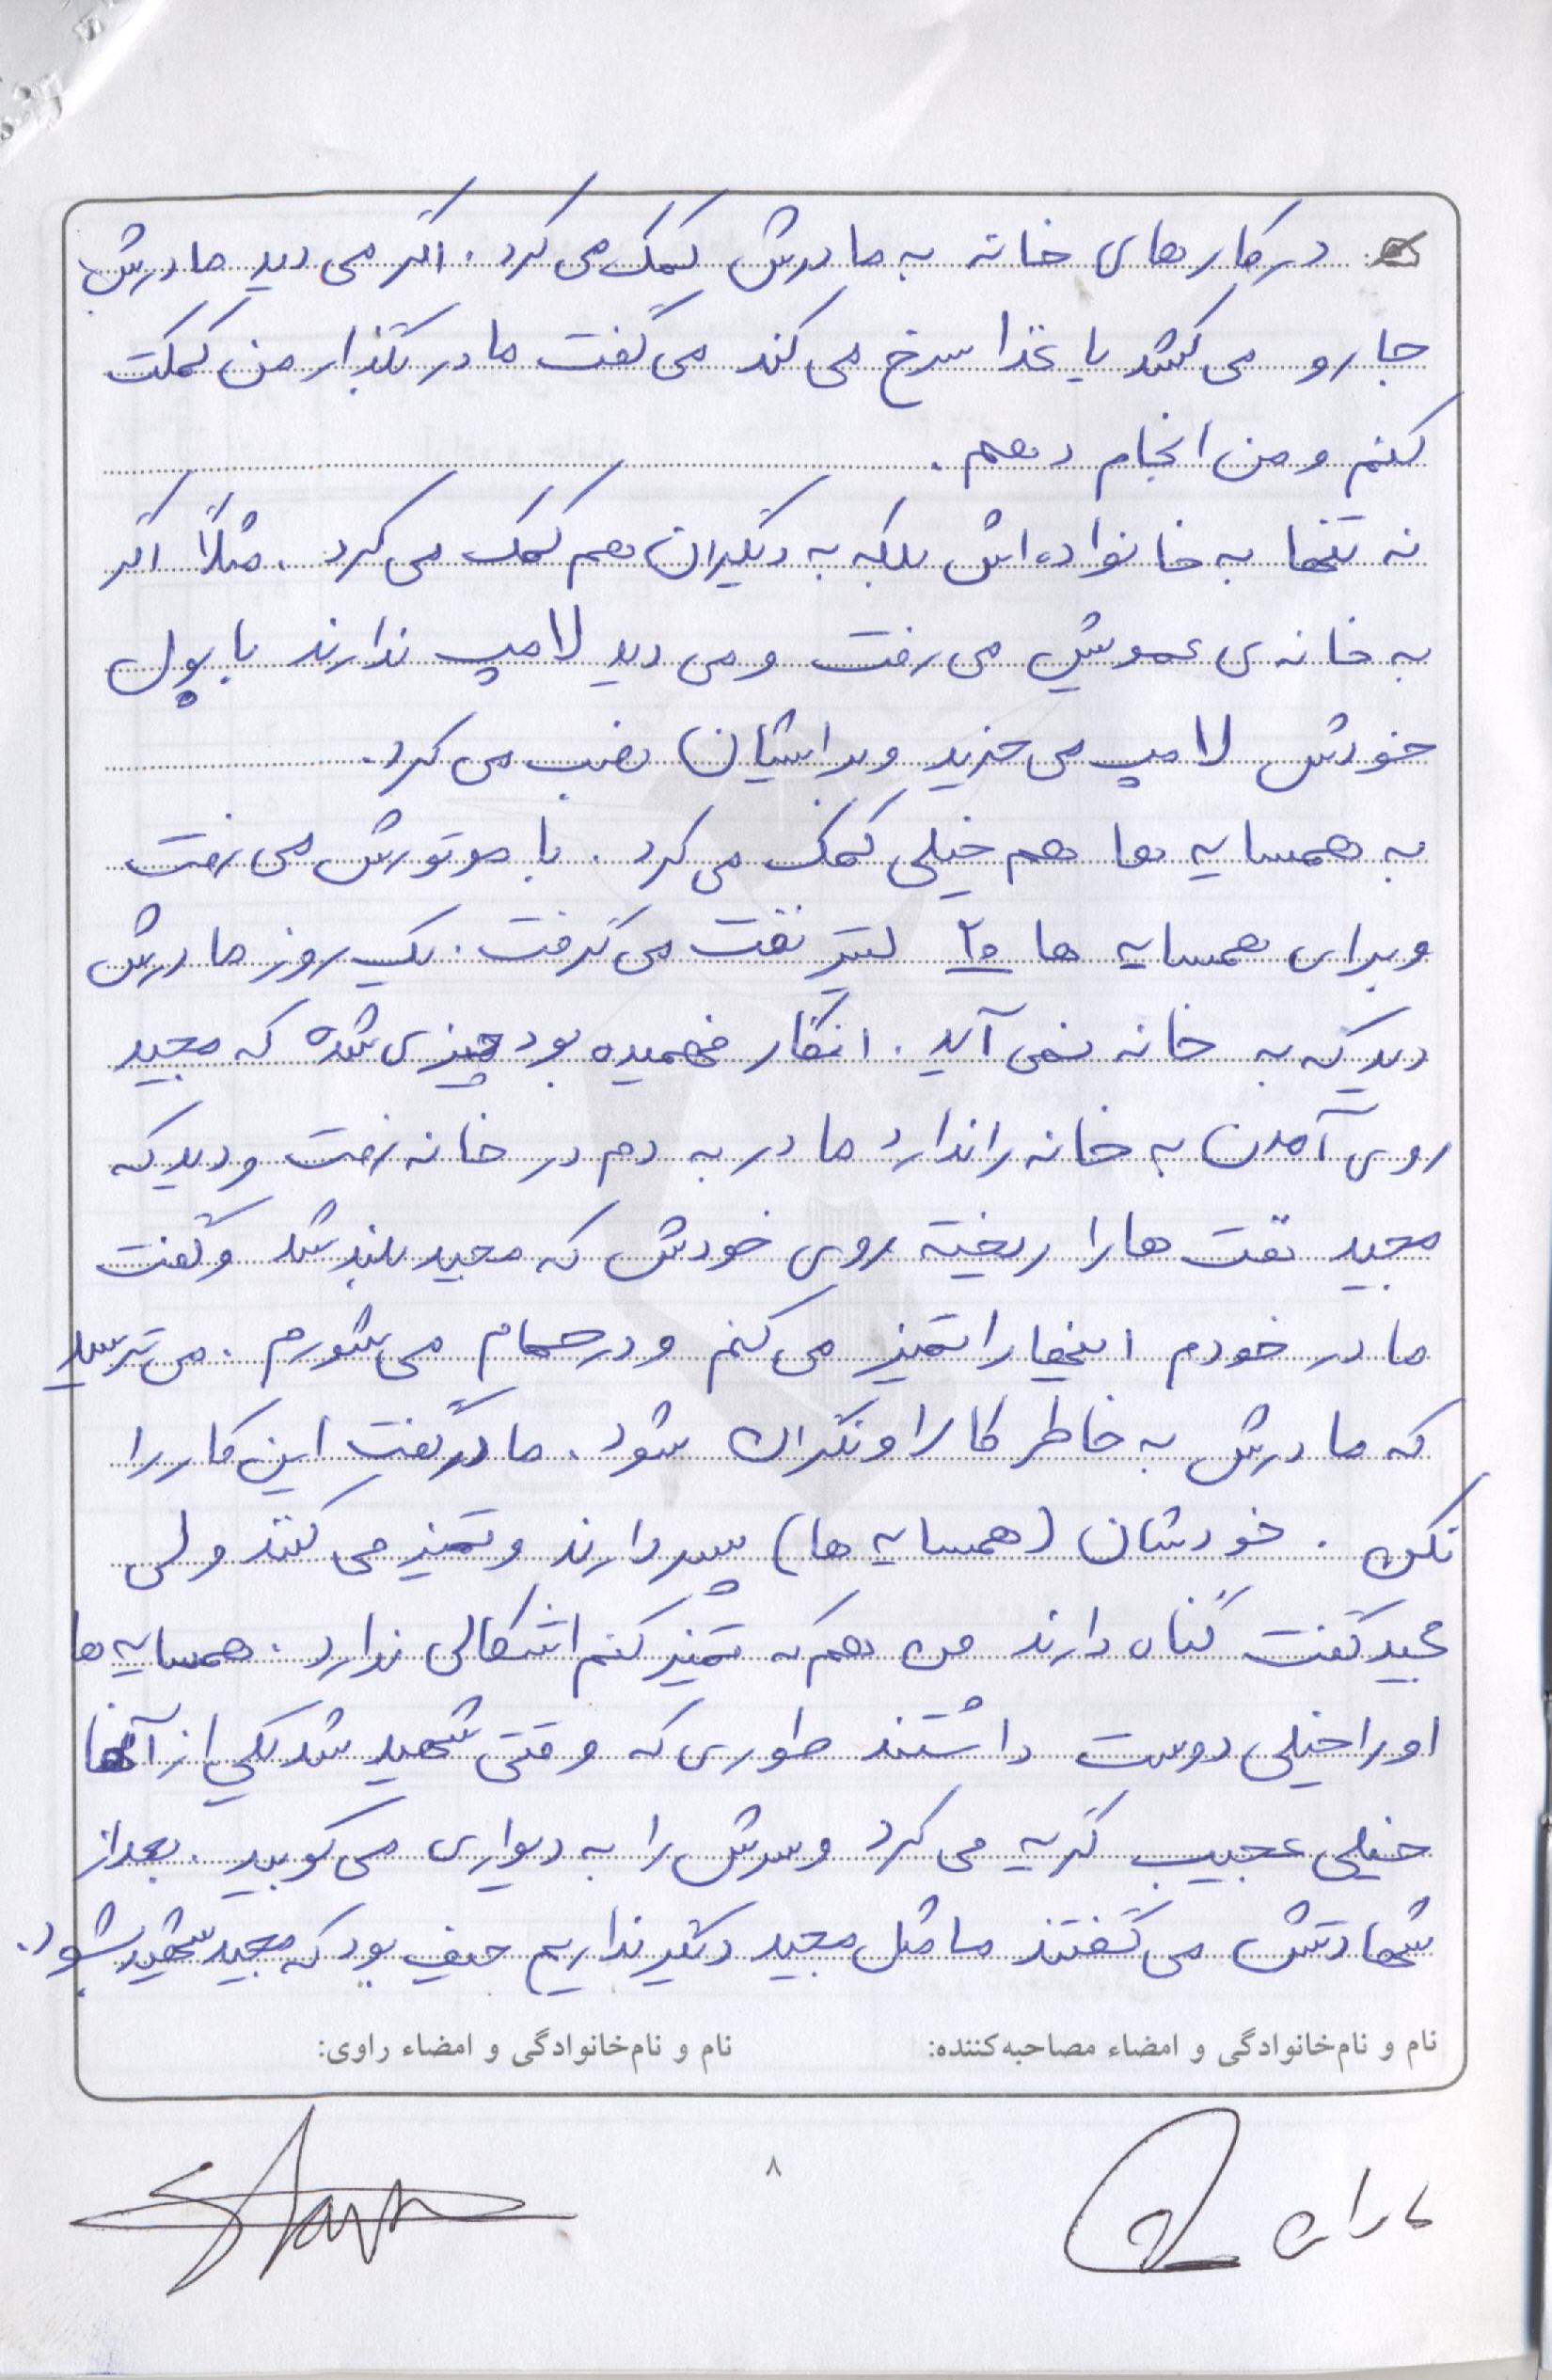 در کارهای خانه به مادرش کمک می کرد. اگر می دید مادرش
جارو می کشد یا غذا سرخ می کند می گفت مادر بگذار من کمکت
کنم و من انجام دهم.
نه تنها به خانواده اش بلکه به دیگران هم کمک می کرد. مثلاً اگر
به خانه ی عمویش می رفت و می دید لامپ ندارند با پول
خودش لامپ می خرید و براشیان نصب می کرد.
به همسایه ها هم خیلی کمک می کرد. با موتورش می رفت
و برای همسایه ها ۲۰ لیتر نفت می گرفت. یک روز مادرش
دید که به خانه نمی آید. انگار فهمیده بود چیزی شده که مجید
روی آمدن به خانه را ندارد مادر به دم در خانه رفت و دید که
مجید نفت ها را ریخته روی خودش که مجید بلند شد و گفت
مادر خودم اینها را تمیز می کنم و در حمام می شورم. می ترسید
که مادرش به خاطر کار او نگران شود. مادر گفت این کار را
نکن. خودشان (همسایه ها) پسر دارند و تمیز می کنند ولی
مجید گفت گناه دارند من هم که تمیز کنم اشکالی ندارد. همسایه ها
او را خیلی دوست داشتند طوری که وقتی شهید شد یکی از آنها
خیلی عجیب گریه می کرد و سرش را به دیواری می کوبید. بعد از
شهادتش می گفتند ما مثل مجید دیگر نداریم حیف بود که مجید شهید بشود.
نام و نام خانوادگی و امضاء مصاحبه کننده: نام و نام خانوادگی و امضاء راوی:
۸